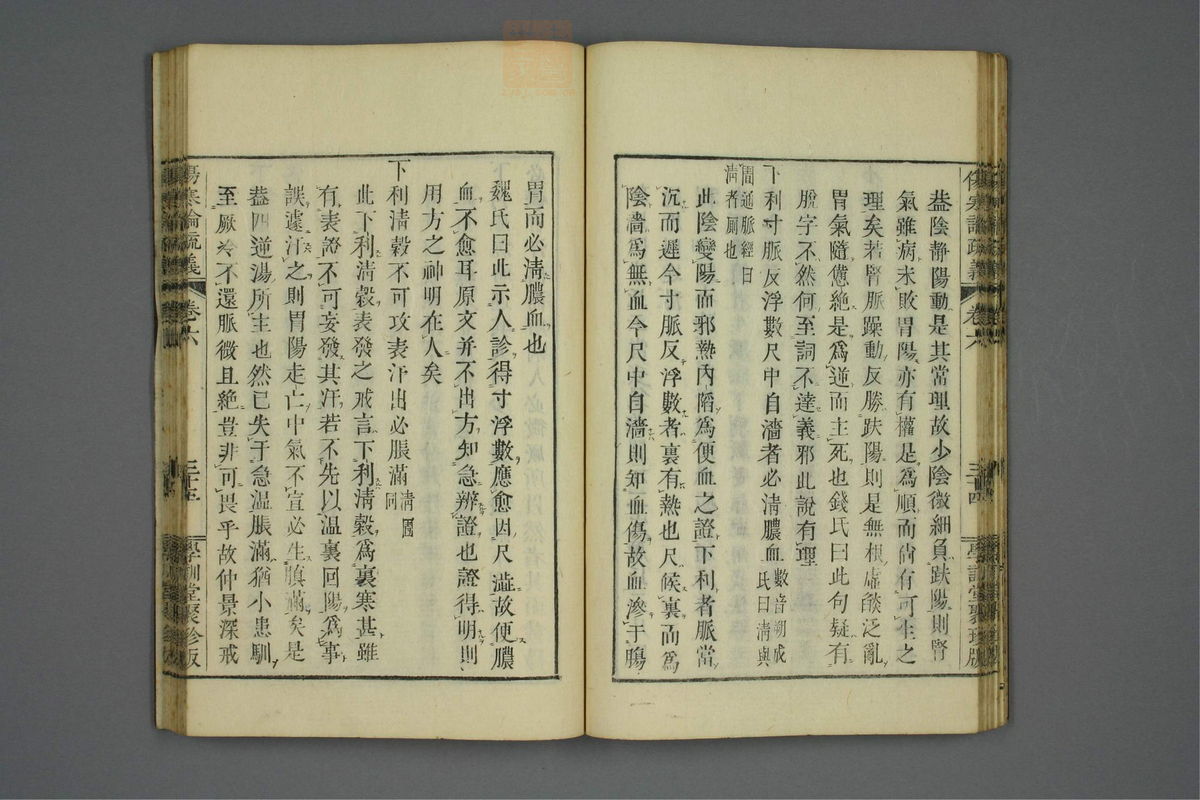 傷寒論疏義 卷六 三十四 學訓堂聚珍版
蓋陰靜陽動是其常理故少陰微細負趺陽則腎
氣雖病未敗胃陽亦有權是爲順而尚有可生之
理矣若腎脈躁動反勝趺陽則是無根虛燄泛亂
胃氣隨憊絕是爲逆而主死也錢氏曰此句疑有
脫字不然何至詞不達義邪此說有理
下利寸脈反浮數尺中自濇者必清膿血數音朔成氏曰清與
圊通脈經曰清者厠也
此陰變陽而邪熱內陷爲便血之證下利者脈當
沉而遲今寸脈反浮數者裏有熱也尺候裏而爲
陰濇爲無血今尺中自濇則知血傷故血滲于腸
胃而必清膿血也
魏氏曰此示人診得寸浮數應愈因尺濇故便膿
血不愈耳原文并不出方知急辨證也證得明則
用方之神明在人矣
下利清穀不可攻表汗出必脹滿清圊同
此下利清穀表發之戒言下利清穀爲裏寒甚雖
有表證不可妄發其汗若不先以溫裏回陽爲事
誤遽汗之則胃陽走亡中氣不宣必生䐜滿矣是
蓋四逆湯所主也然已失于急溫脹滿猶小患馴
至厥冷不還脈微且絕豈非可畏乎故仲景深戒
傷寒論疏義 卷六 三十四 學訓堂聚珍版